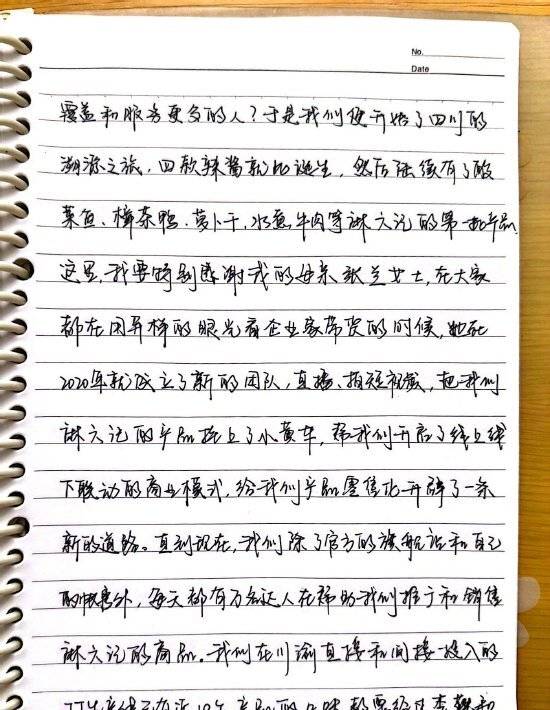 No.
Date
覆盖和服务更多的人？于是我们便开始了四川的
溯源之旅，四款辣酱就此诞生，然后陆续有了酸
菜鱼、樟茶鸭、萝卜干，水煮牛肉等麻六记的第一批产品
这里，我要特别感谢我的母亲张兰女士，在大家
都在用异样的眼光看企业家带货的时候，她在
2020年就成立了新的团队，直播、拍短视频，把我们
麻六记的产品挂上了小黄车，帮我们开启了线上线
下联动的商业模式，给我们产品零售化开辟了一条
新的道路。直到现在，我们除了官方的旗舰店和自己
的账号外，每天都有万名达人在帮助我们推广和销售
麻六记的商品。我们在川渝直接和间接投入的